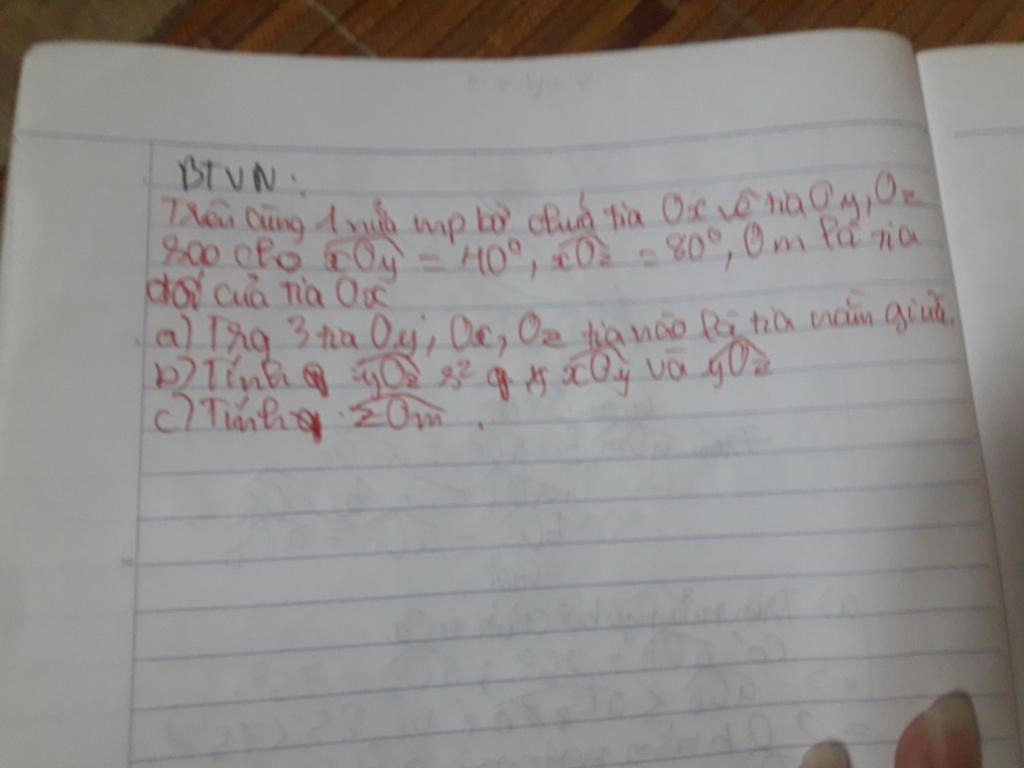 BTVN:
Trên cùng 1 nửa mp bờ chứa tia Ox vẽ tia Oy, Oz
sao cho xOy = 40°, xOz = 80°, Om là tia
đối của tia Ox
a) Trg 3 tia Oy, Ox, Oz tia nào là tia nằm giữa.
b) Tính yOz s² xOy và yOz
c) Tính zOm.